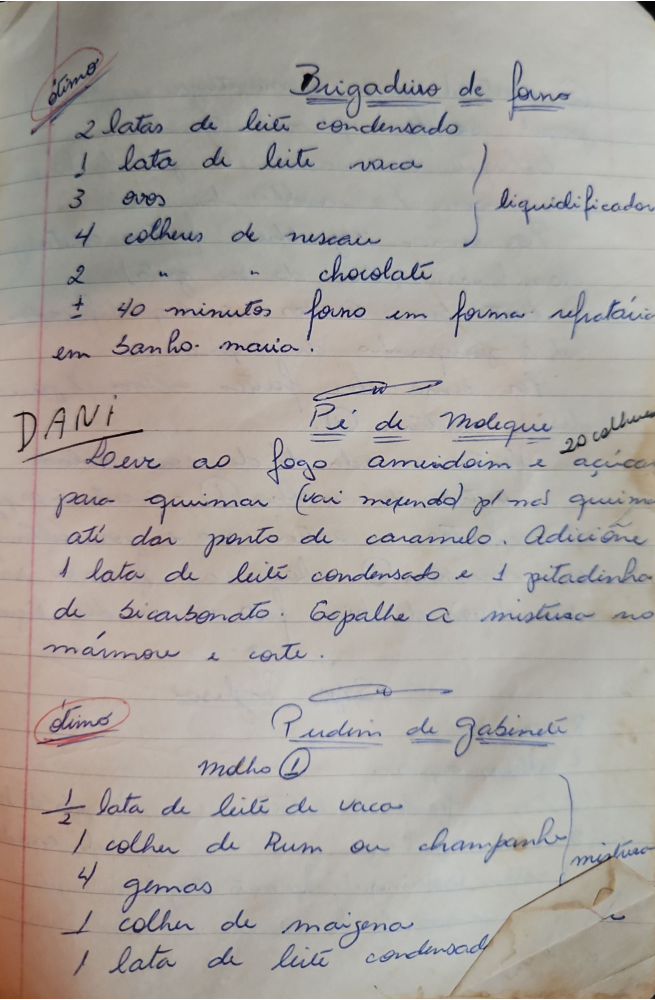 ótimo
Brigadeiro de forno
2 latas de leite condensado
1 lata de leite vaca
3 ovos
liquidificador
4 colheres de nescau
2 " " chocolate
± 40 minutos forno em forma refratária
em banho-maria.
DANI
Pé de Moleque
20 colheres
Leve ao fogo amendoim e açúcar
para queimar (vai mexendo) p/ não queima
até dar ponto de caramelo. Adicione
1 lata de leite condensado e 1 pitadinha
de bicarbonato. Espalhe a mistura no
mármore e corte.
ótimo
Pudim de gabinete
Molho 1
1/2 lata de leite de vaca
1 colher de Rum ou champanhe
mistura
4 gemas
1 colher de maizena
1 lata de leite condensad